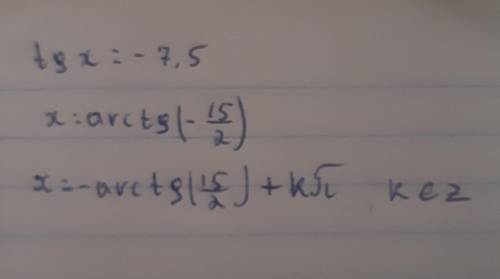 tg x = - 7,5
x = arctg(-15/2)
x = -arctg(15/2) + kπ k ∈ Z